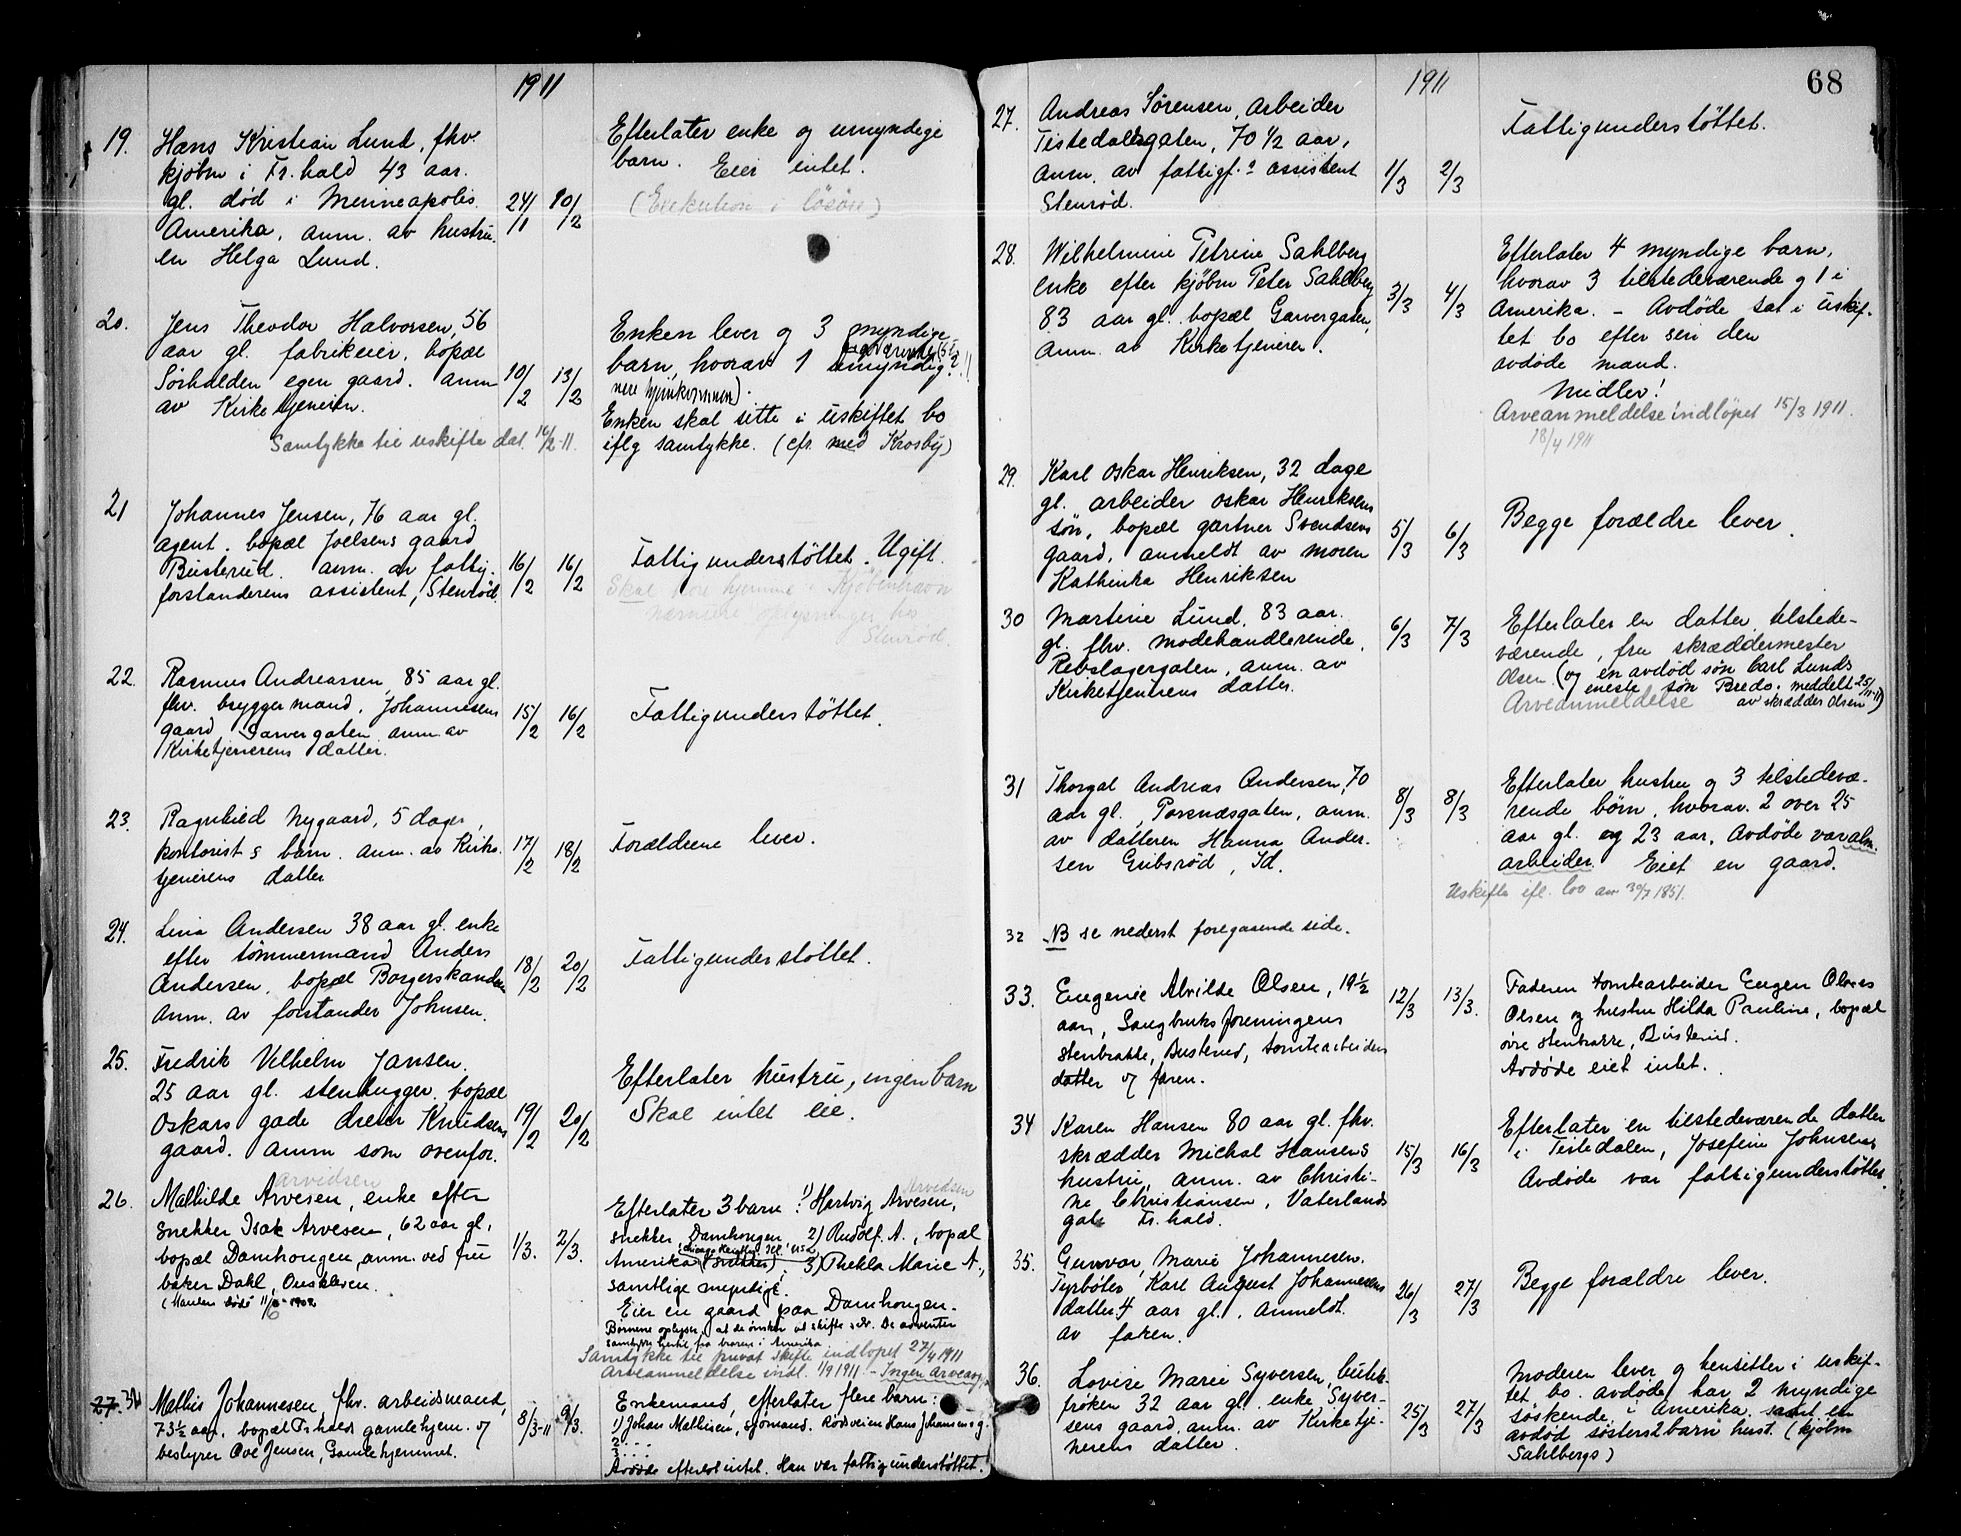 1911
19. Hans Kristian Lund, fhv.
kjøbm i Fr.hald 43 aar.
gl. død i Minneapolis
Amerika, anm. av hustru-
en Helga Lund.
24/1 10/2
Efterlater enke og umyndige
barn. Eier intet.
(Exekution i løsøre)
20. Jens Theodor Halvorsen, 56
aar gl. fabrikeier, bopæl
Sørhalden egen gaard. anm
av Kirketjeneren.
Samtykke til uskifte dat. 16/2-11.
10/2 13/2
Enken lever og 3 myndige
barn, hvorav 1 umyndig.
Enken skal sitte i uskiftet bo
iflg samtykke. (cfr. med Krosby)
21 Johannes Jensen, 76 aar gl.
agent. bopæl Joelsens gaard
Busterud. anm. av fattig-
forstanderens assistent, Stenrød.
16/2 16/2
Fattigunderstøttet. Ugift.
Skal høre hjemme i Kjøbenhavn
nærmere oplysninger hos
Stenrød.
22. Rasmus Andreassen, 85 aar gl.
fhv. bryggermand, Johannesens
gaard Garvergaten anm av
Kirketjenerens datter.
15/2 16/2
Fattigunderstøttet.
23. Ragnhild Nygaard, 5 dager,
kontorist s barn. anm. av Kirke-
tjenerens datter
17/2 18/2
Forældrene lever.
24. Lina Andersen 38 aar gl. enke
efter tømmermand Anders
Andersen, bopæl Borgerskansen
Anm. av forstander Johnsen.
18/2 20/2
Fattigunderstøttet.
25. Fredrik Vilhelm Jansen.
25 aar gl. stenhugger. bopæl
Oskars gade dreier Knudsens
gaard. Anm som ovenfor.
19/2 20/2
Efterlater hustru, ingen barn
Skal intet eie.
Arvidsen
26. Mathilde Arvesen, enke efter
snekker Isak Arvesen, 62 aar gl,
bopæl Damhougen, anm. ved fru
baker Dahl, Ouskleven.
(Manden døde 11/6 1902
1/3. 2/3.
Arvidsen
Efterlater 3 barn: 1) Hartvig Arvesen,
snekker, Damhougen 2) Rudolf. A., bopæl
Amerika (snekker), 3) Thekla Marie A.,
samtlige myndige.
Eier en gaard paa Damhougen.
Børnene oplyser, at de ønsker at skifte selv. De avventer
samtykke hertil fra broren i Amerika
Samtykke til privat skifte indløpet 27/4 1911
Arveanmeldelse indl. 1/9 1911 - Ingen arveavg.
27. 32 Mathis Johannesen, fhv. arbeidsmand,
73½ aar, bopæl Fr.halds gamlehjem. v/
bestyrer Ove Jensen, Gamlehjemmet.
8/3-11 9/3.
Enkemand, efterlater flere barn:
1) Johan Mathisen, sjømand. Rødsveien Hans Johansens g.
2 ....
3 ....
Avdøde efterlot intet. Han var fattigunderstøttet.
1911
68
27. Andreas Sørensen, Arbeider
Tistedalsgaten, 70 1/2 aar,
Anm. av fattigf.s assistent
Stenrød.
1/3 2/3
Fattigunderstøttet.
28. Wilhelmine Petrine Sahlberg
enke efter kjøbm Peter Sahlberg
83 aar gl. bopæl Garvergaten,
Anm. av Kirketjeneren.
3/3 4/3
Efterlater 4 myndige barn,
hvorav 3 tilstedeværende og 1 i
Amerika. - Avdøde sat i uskif-
tet bo efter sin den
avdøde mand.
Midler!
Arveanmeldelse indløpet 15/3 1911.
18/4 1911
29. Karl Oskar Henriksen, 32 dage
gl. arbeider Oskar Henriksens
søn, bopæl gartner Svendsens
gaard, anmeldt av moren
Kathinka Henriksen
5/3 6/3
Begge forældre lever.
30 Martine Lund, 83 aar.
gl. fhv. modehandlerinde,
Rebslagergaten, anm. av
Kirketjenerens datter.
6/3 7/3
Efterlater en datter, tilstede-
værende, fru skræddermester
Olsen. (og en avdød søn Carl Lunds
eneste søn Bredo. meddelt 25/11-11
av skrædder Olsen)
Arveanmeldelse
31 Thorgal Andreas Andersen, 70
aar gl., Porsnæsgaten, anm.
av datteren Hanna Ander-
sen Gribsrød, Id.
8/3 8/3
Efterlater hustru og 3 tilstedevæ-
rende børn, hvorav 2 over 25
aar gl. og 23 aar, Avdøde var alm.
arbeider. Eiet en gaard.
Uskifte ifl. lov av 30/7 1851.
32 NB se nederst foregaaende side.
33. Eugenie Alvilde Olsen, 19½
aar, Saugbruksforeningens
stenbrakke, Busterud, tomtearbeiders
datter v/ faren.
12/3 13/3.
Faderen tomtearbeider Eugen Olaves
Olsen og hustru Hilda Pauline, bopæl
øvre stenbrakke, Busterud.
Avdøde eiet intet.
34 Karen Hansen 80 aar gl. fhv.
skrædder Michal Hansens
hustru, anm. av Christi-
ne Christiansen, Vaterlands
gate Fr.hald.
15/3 16/3
Efterlater en tilstedeværende datter
i Tistedalen, Josefine Johnsen
Avdøde var fattigunderstøttet.
35. Gunvor Marie Johannesen.
Fyrbøter Karl August Johannesens
datter 4 aar gl., Anmeldt.
av faren.
26/3 27/3
Begge forældre lever.
36. Lovise Marie Syversen, butik-
frøken 32 aar gl. enke Syver-
sens gaard, anm. av Kirketje-
nerens datter.
25/3 27/3
Moderen lever og hensitter i uskif-
tet bo. avdøde har 2 myndige
søskende i Amerika samt en
avdød søsters 2 barn hust. (kjøbm
Sahlbergs)